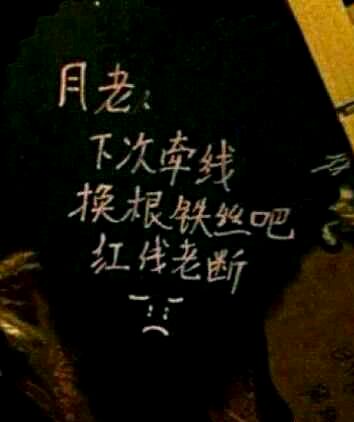 月老:
下次牵线
换根铁丝吧
红线老断